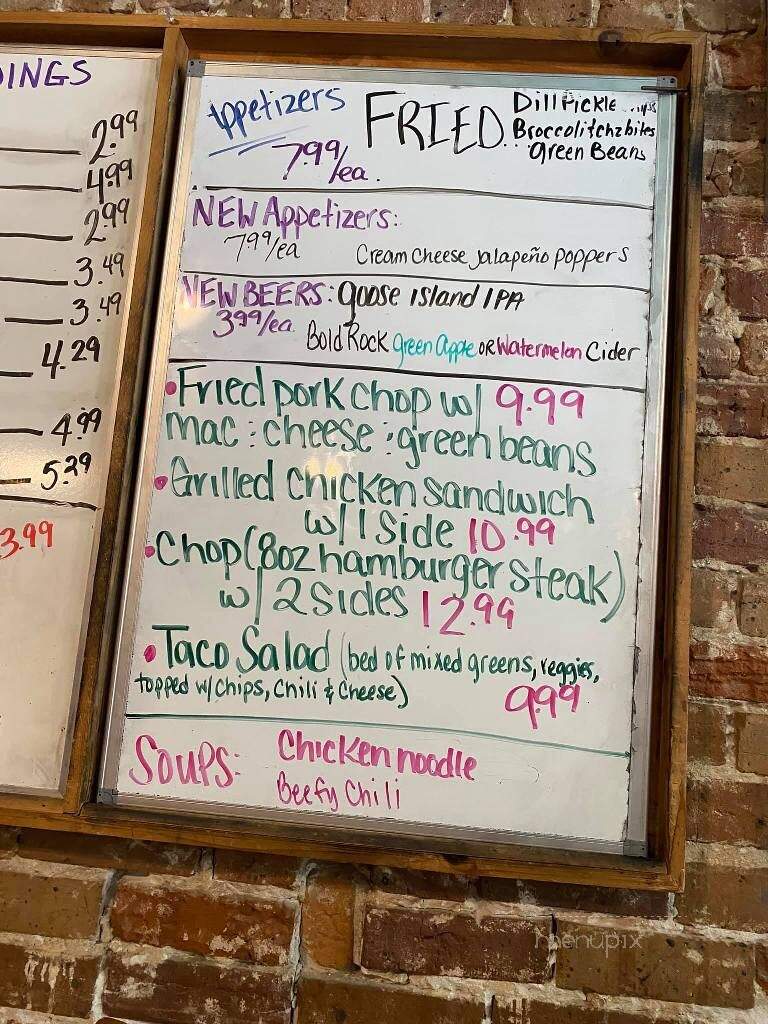 DINGS
2.99
4.99
2.99
3.49
3.49
4.29
4.99
5.29
3.99
Appetizers
7.99/ea.
FRIED
Dill Pickle
Broccolitchzbites
Green Beans
NEW Appetizers:
7.99/ea
Cream Cheese Jalapeño Poppers
NEW BEERS: Goose island IPA
3.99/ea.
Bold Rock Green Apple OR Watermelon Cider
•Fried pork chop w/ 9.99
mac : cheese : green beans
•Grilled chicken sandwich
w/ 1 side 10.99
•Chop (8oz hamburger steak)
w/ 2 sides 12.99
•Taco Salad (bed of mixed greens, veggies,
topped w/ chips, chili & cheese)
9.99
Soups: Chicken noodle
Beefy Chili
menupix